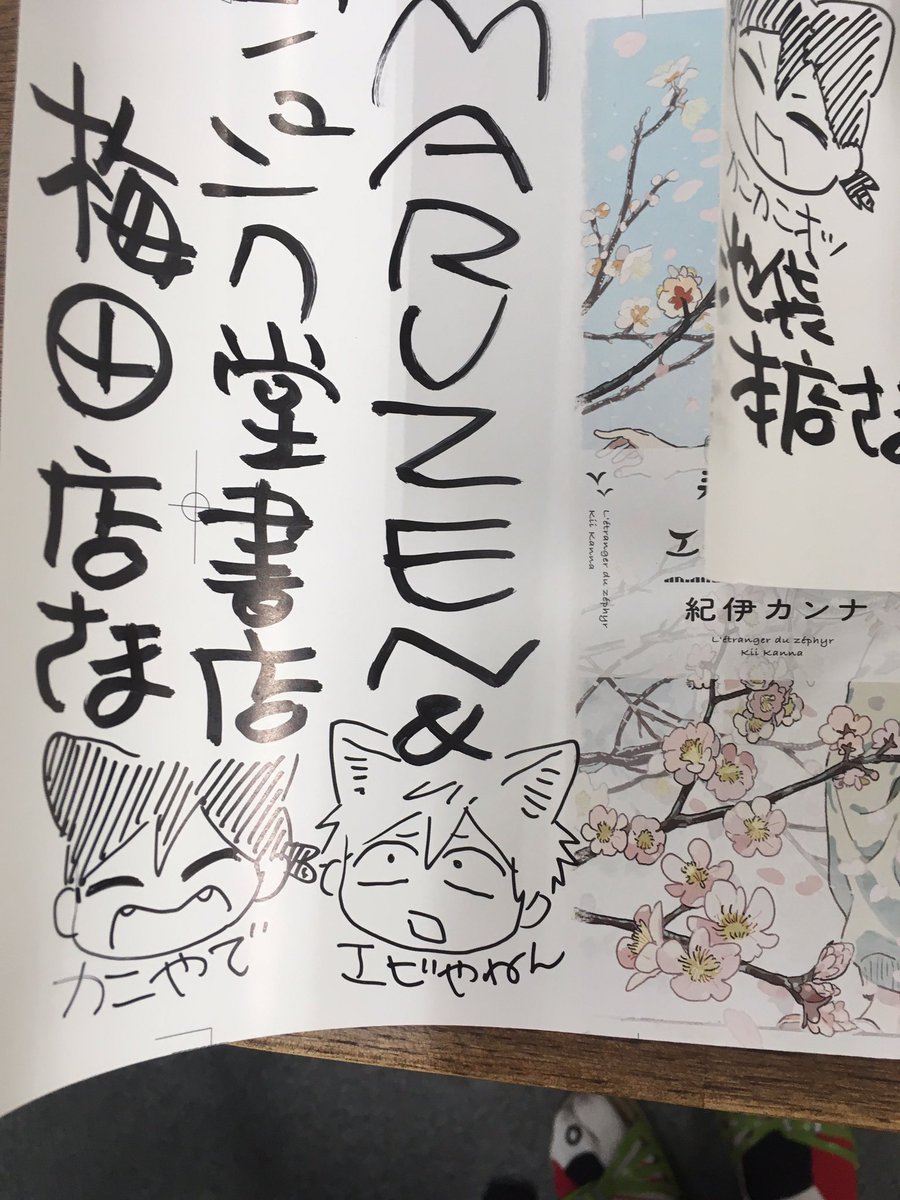 MARUZEN&
ジュンク堂書店
梅田店さま
カニやで
エビやねん
池袋
本店さま
L'étranger du zéphyr
Kii Kanna
紀伊カンナ
L'étranger du zéphyr
Kii Kanna